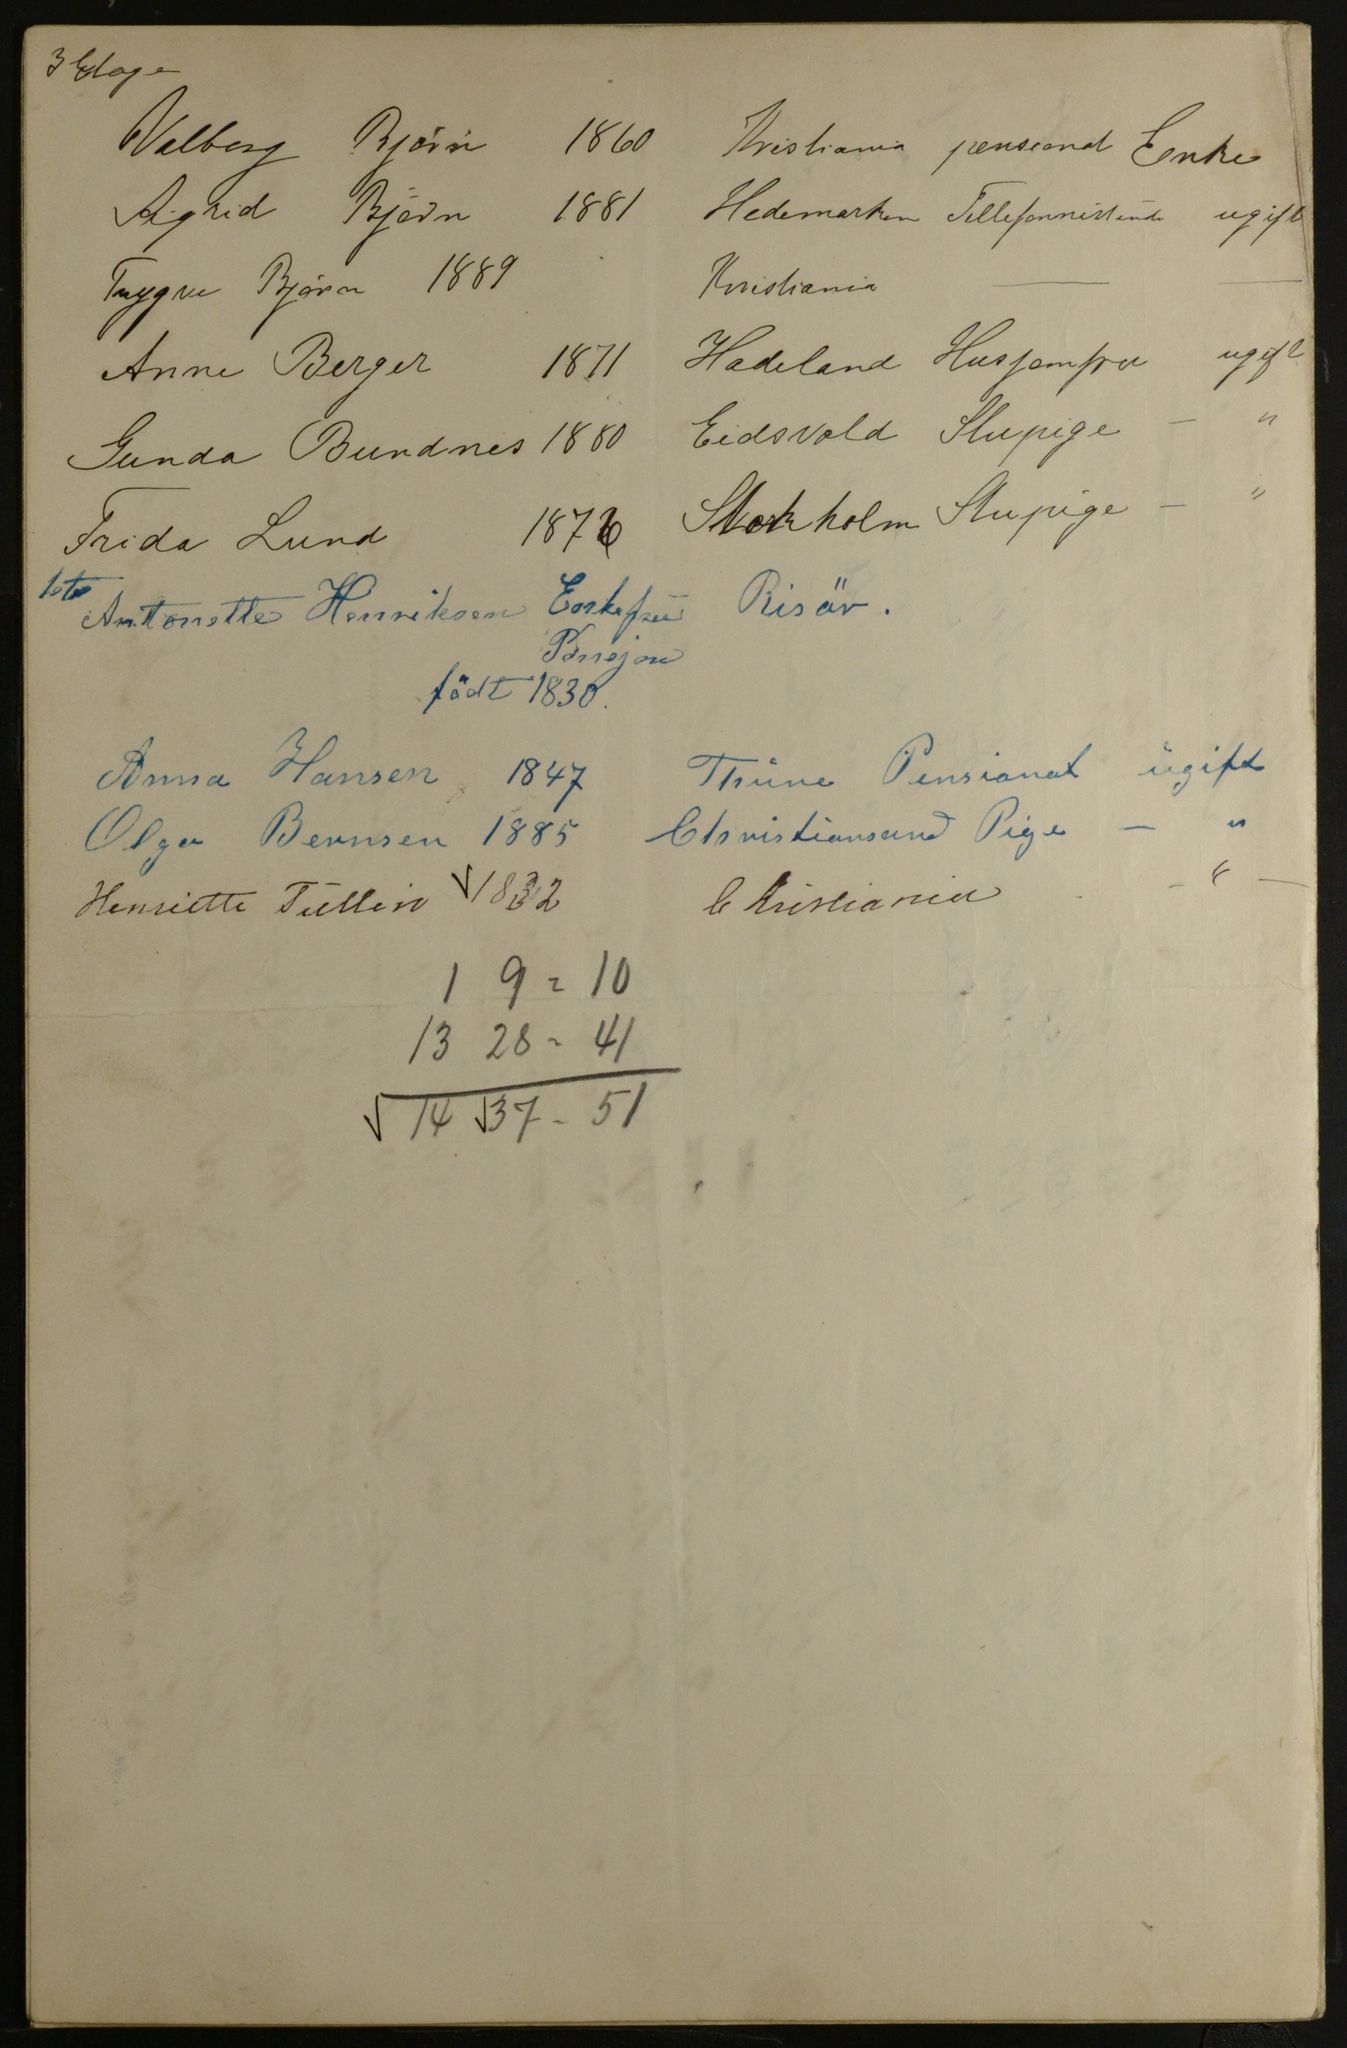 3 Etage
Valborg Björn 1860 Kristiania pensionat Enke
Sigrid Björn 1881 Hedemarken Tellefonnistinde ugift
Trygve Björn 1889 Kristiania —— ——
Anne Berger 1871 Hadeland Husjomfru ugift
Gunda Bundnes 1880 Eidsvold Stupige - "
Frida Lund 1876 Stokholm Stupige - "
1ste
Antonette Henriksen Enkefrü Risör.
Pensjon
födt 1830.
Anna Hansen 1847 Pensionat ügift
Olga Bernsen 1885 Christiansand Pige - "
Henriette Tüllin √ 1832 Christiania - " -
1 9 = 10
13 28 = 41
√ 14 √ 37 - 51